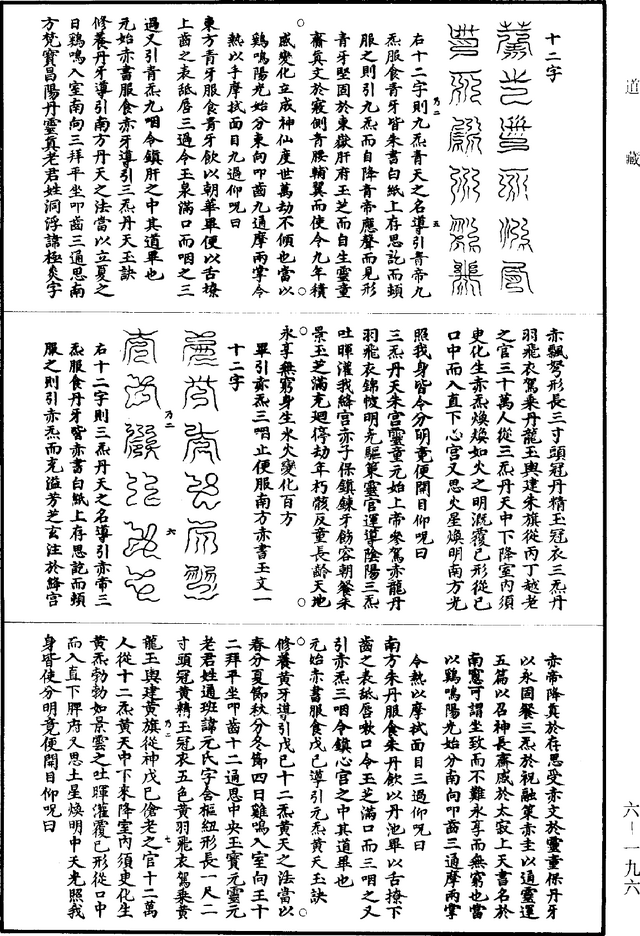 道藏
十二字
右十二字則九炁青天之名導引青帝九
炁服食青牙皆朱書白紙上存思訖而頻
服之則引九炁而自降青帝應聲而見形
青牙堅固於東嶽肝府玉芝而自生靈童
齋真文於寢側青腰輔翼而使令九年積
感變化立成神仙度世萬劫不傾也當以
鷄鳴陽光始分東向叩齒九通摩兩掌令
熱以手摩拭面目九過仰呪曰
東方青牙服食青牙飲以朝華畢便以舌撩
上齒之表舐唇三過令玉泉滿口而咽之三
過又引青炁九咽令鎮肝之中其道畢也
元始赤書服食赤牙導引三炁丹天玉訣
修養丹牙導引南方丹天之法當以立夏之
日鷄鳴入室南向三拜平坐叩齒三通思南
方梵寶昌陽丹靈真老君姓洞浮諱極炎字
赤飄弩形長三寸頭冠丹精玉冠衣三炁丹
羽飛衣駕乘丹龍玉輿建朱旗從丙丁越老
之官三十萬人從三炁丹天中下降室內須
更化生赤炁煥煥如火之明漑覆己形從己
口中而入直下心宮又思火星煥明南方光
照我身皆令分明竟便開目仰呪曰
三炁丹天朱宮靈童元始上帝參駕赤龍丹
羽飛衣錦帔明光驅策靈官運導陰陽三炁
吐暉灌我絳宮赤子保鎮鍊牙飭容朝餐朱
景玉芝滿充迴停劫年朽骸反童長齡天地
永享無窮身生水火變化百方
畢引赤炁三咽止便服南方赤書玉文一
十二字
右十二字則三炁丹天之名導引赤帝三
炁服食丹牙皆赤書白紙上存思訖而頻
服之則引赤炁而充溢芳芝玄注於絳宮
赤帝降真於存思受赤文於靈童保丹牙
以永固餐三炁於祝融策赤圭以通靈運
五篇以召神長齋感於太寂上天書名於
南窻可謂坐致而不難永享而無窮也當
以鷄鳴陽光始分南向叩齒三通摩兩掌
令熱以摩拭面目三過仰呪曰
南方朱丹服食朱丹飲以丹池畢以舌撩下
齒之表舐唇嗽口令玉芝滿口而三咽之又
引赤炁三咽令鎮心宮之中其道畢也
元始赤書服食戊己導引元炁黃天玉訣
修養黃牙導引戊己十二炁黃天之法當以
春分夏節秋分冬節四日雞鳴入室向王十
二拜平坐叩齒十二通思中央玉寶元靈元
老君姓通班諱元氏字含樞紐形長一尺二
寸頭冠黃精玉冠衣五色黃羽飛衣駕乘黃
龍玉輿建黃旗從神戊己傖老之官十二萬
人從十二炁黃天中下來降室內須更化生
黃炁勃勃如景雲之吐暉灌覆己形從口中
而入直下脾府又思土星煥明中天光照我
身皆使分明竟便開目仰呪曰
六－一九六